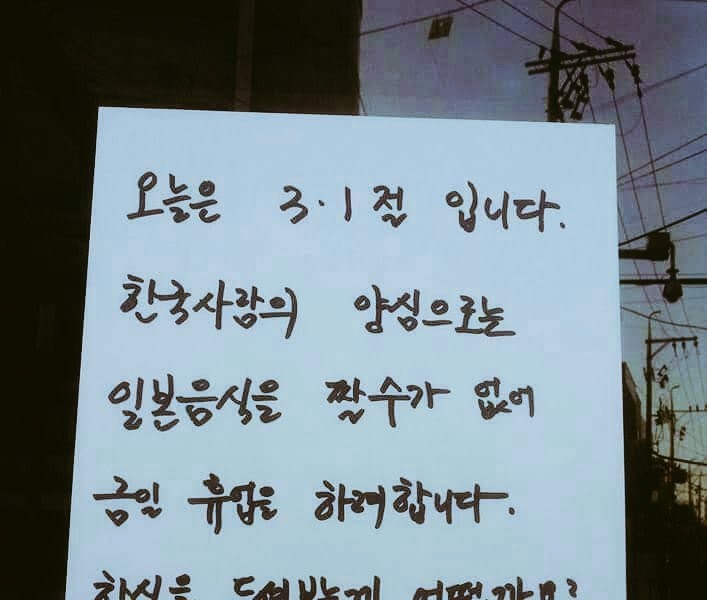 오늘은 3·1절 입니다.
한국사람의 양심으로는
일본음식을 팔수가 없어
금일 휴업을 하려합니다.
한식을